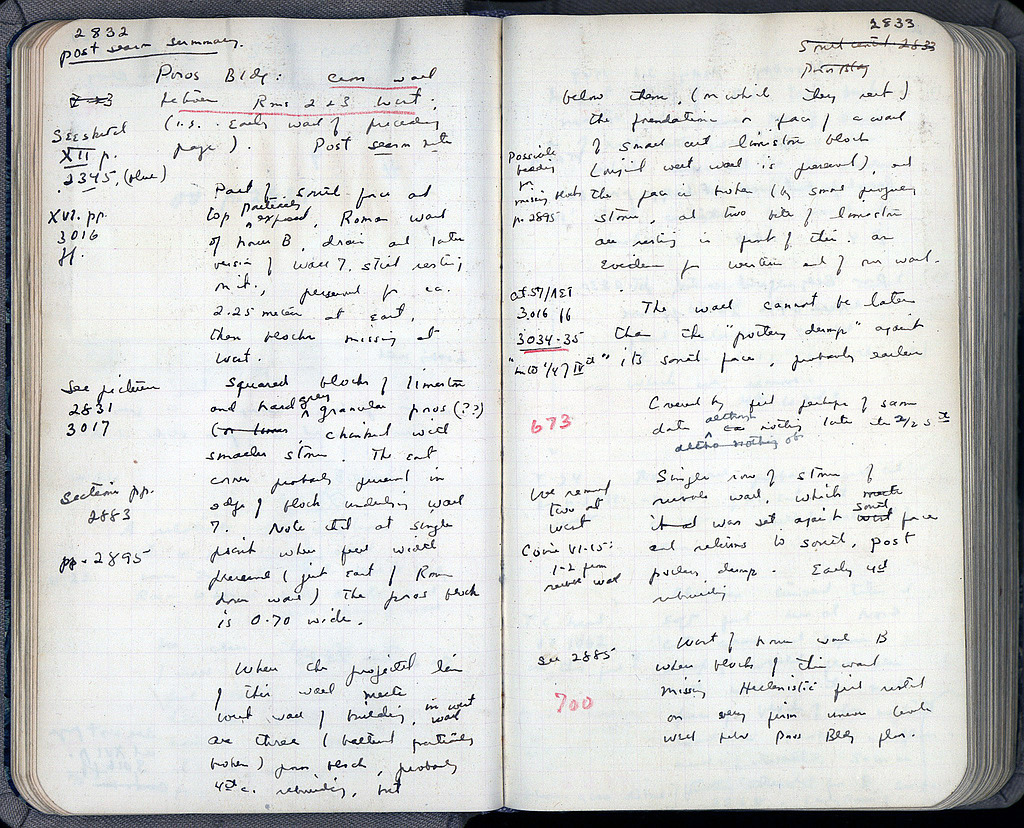 2832
post season summary.
Poros Bldg: cross wall
between Rms 2 & 3 West.
(i.e. Early wall of preceding
page). Post season note
See sketch
XII p.
2345, (blue)
XVI. pp.
3016
ff.
Part of south face at
top partially exposed, Roman wall
of house B, drain and later
version of wall 7, still resting
on it, preserved for ca.
2.25 meters at east,
then blocks missing at
west.
See picture
2831
3017
Squared blocks of limestone
and hard grey granular poros (??)
chinked with
smaller stones. The east
corner probably present in
edge of block underlying wall
7. Note that at single
point where full width
preserved (just east of Rom
drain wall) the poros block
is 0.70 wide.
Sections pp.
2883
pp. 2895
When the projected line
of this wall meets
west wall of building, in west wall
are three (battered partially
broken) poros blocks, probably
4th c. rebuilding, but
2833
South central 2833
Poros Bldg
below them, (on which they rest)
the foundations or face of a wall
of small cut limestone blocks
(original west wall is present), and
the face is broken (by small
stones, and two bits of limestone
are resting in front of this. as
Evidence for western end of our wall.
Possible
bedding
for
missing blocks
p. 2895
The wall cannot be later
than the "pottery dump" against
its south face, probably earlier
3016 ff
3034-35
673
Covered by fill perhaps of same
date although nothing later than 2/2 5th
altho nothing of
Single row of stones of
rubble wall, which
was set against south face
and returns to south, post
pottery dump. Early 4th
rebuilding
We removed
two at
west
Coin VI-15:
1-2 from
rubble wall
See 2885
700
West of house wall B
where blocks of this wall
missing Hellenistic fill rested
on very firm uneven
well below Poros Bldg floor.